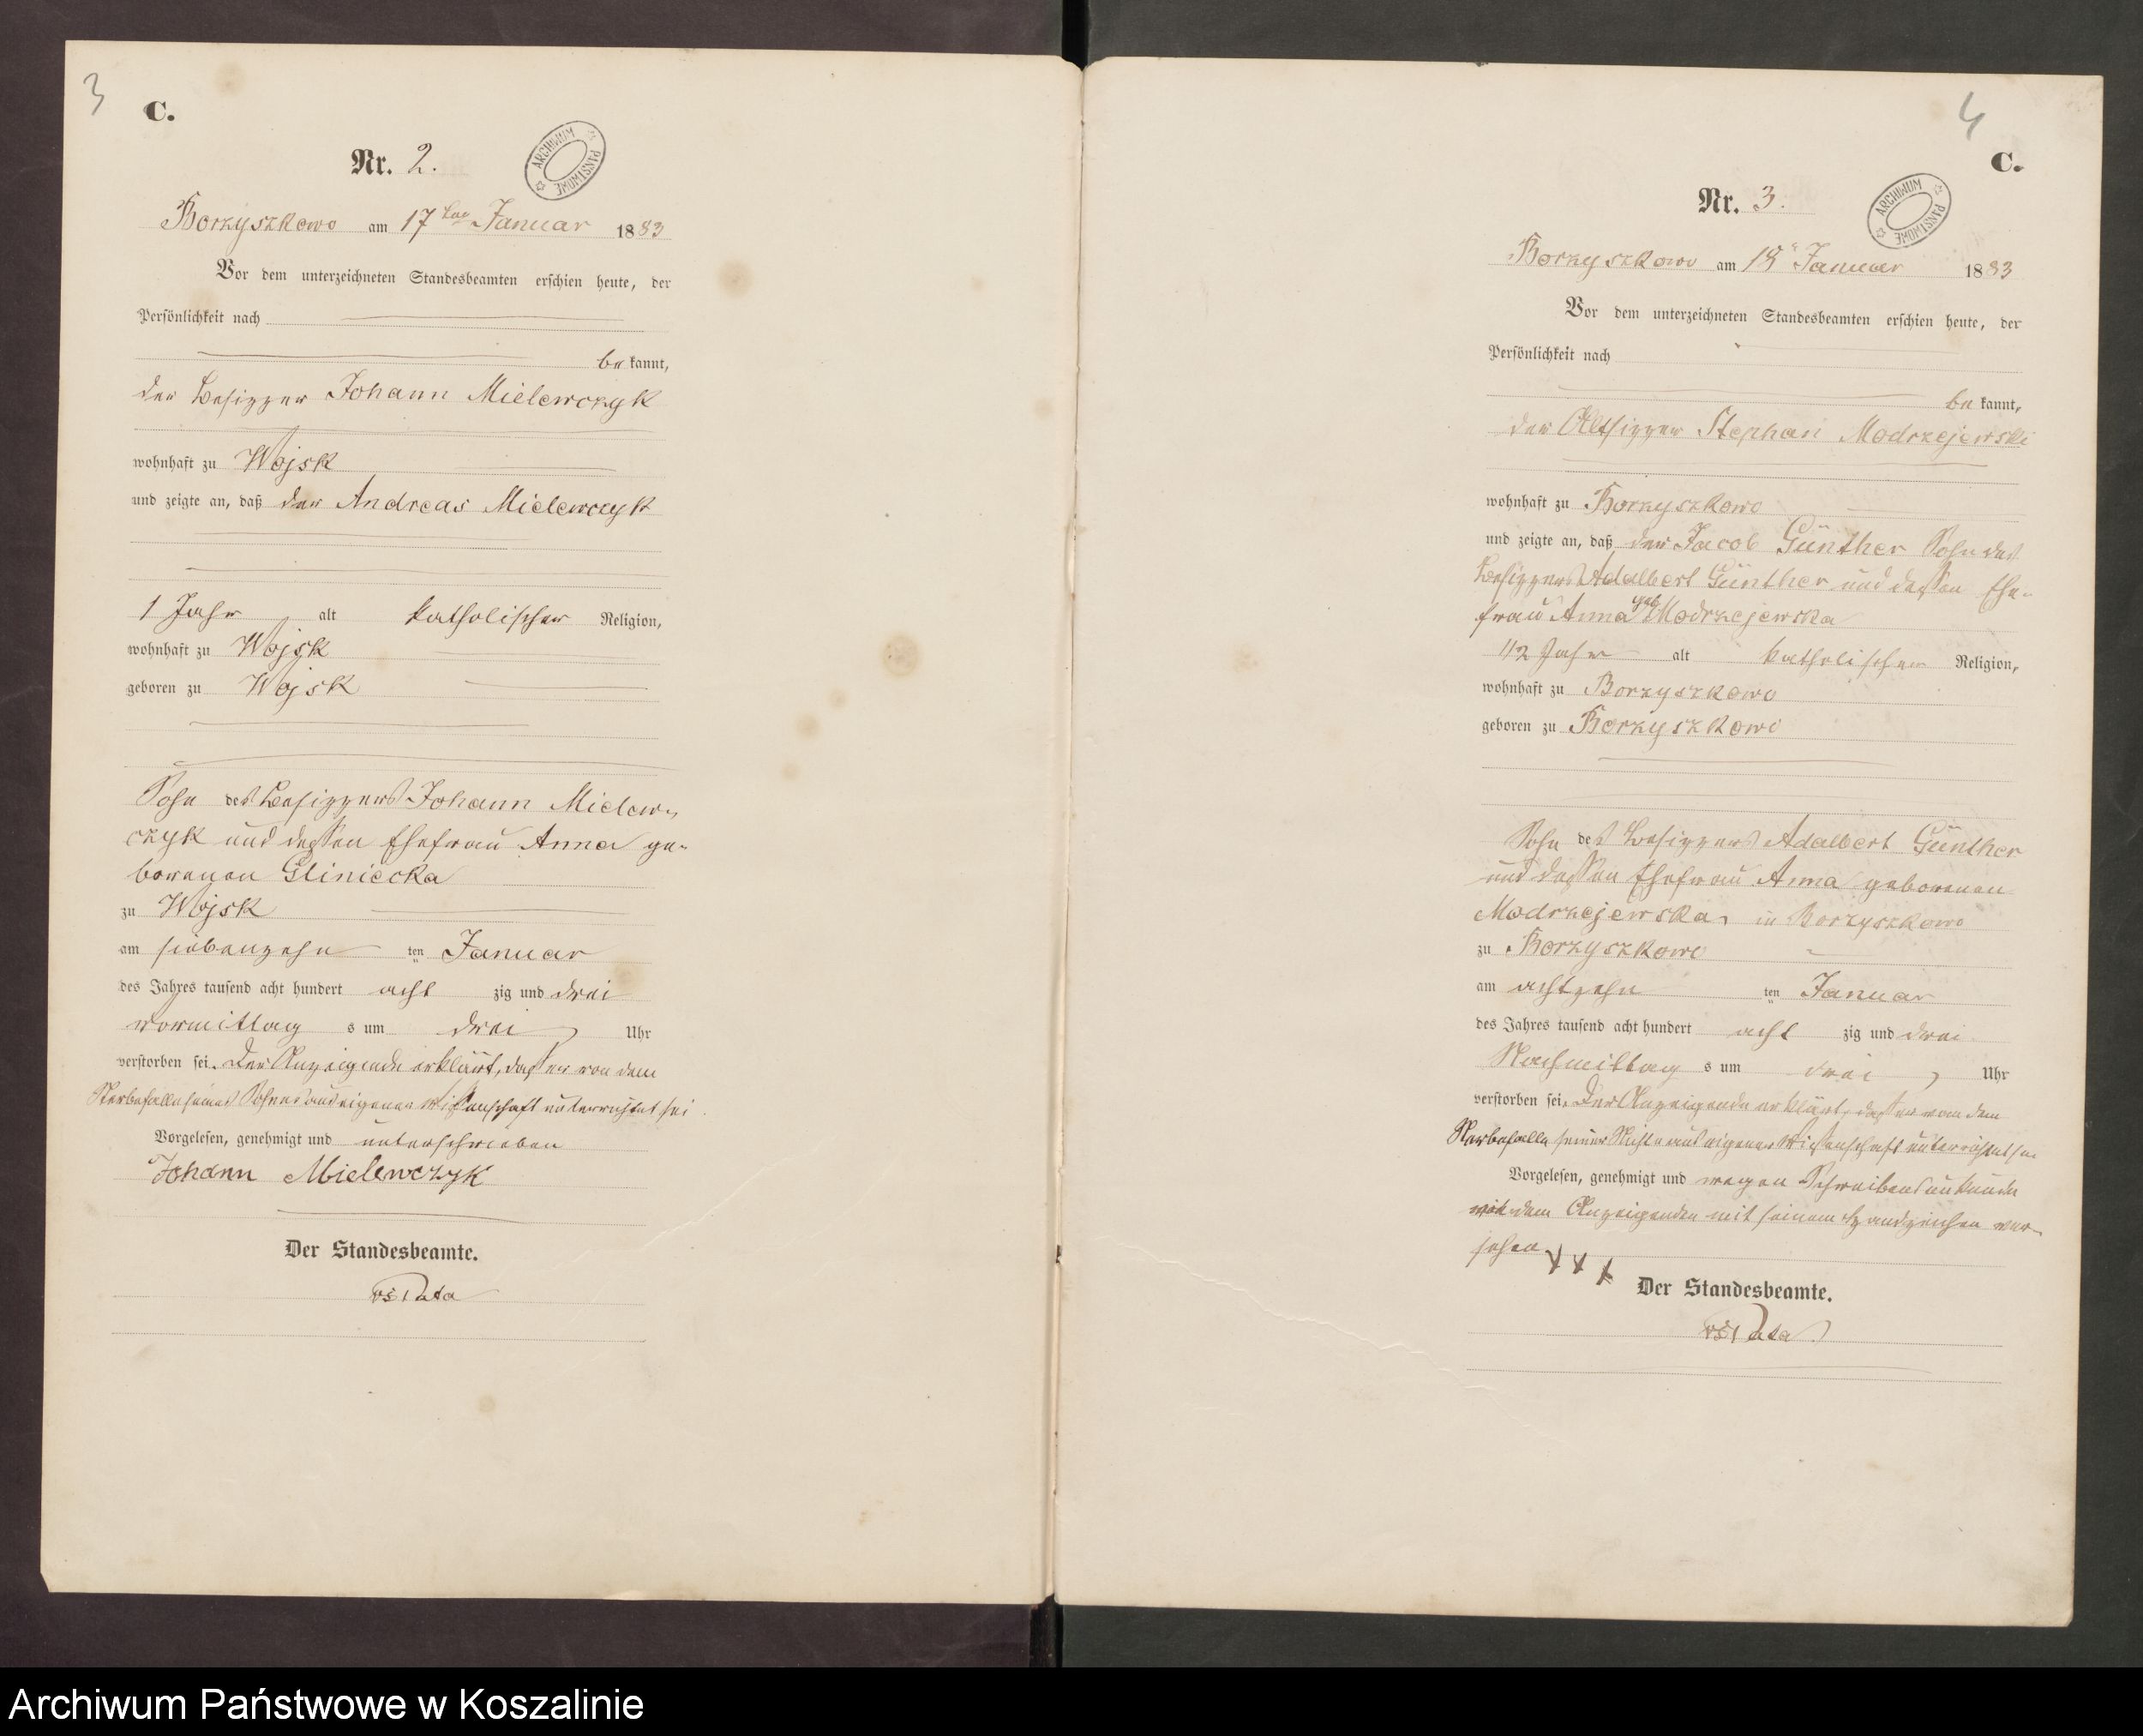 3
C.
Nr. 2.
ARCHIWUM PAŃSTWOWE
Borzyszkowo am 17ten Januar 1883
Vor dem unterzeichneten Standesbeamten erschien heute, der
Persönlichkeit nach
be kannt,
der Besitzer Johann Mielewczyk
wohnhaft zu Wojsk
und zeigte an, daß der Andreas Mielewczyk
1 Jahr alt katholischer Religion,
wohnhaft zu Wojsk
geboren zu Wojsk
Sohn des Besitzers Johann Mielew-
czyk und dessen Ehefrau Anna ge-
borenen Gliniecka
zu Wojsk
am siebenzehn ten Januar
des Jahres tausend acht hundert acht zig und drei
vormittag s um drei Uhr
verstorben sei. Der Anzeigende erklärt, daß er von dem
Sterbefalle seines Sohnes aus eigener Wissenschaft unterrichtet sei
Vorgelesen, genehmigt und unterschrieben
Johann Mielewczyk
Der Standesbeamte.
4
C.
Nr. 3.
ARCHIWUM PAŃSTWOWE
Borzyszkowo am 18" Januar 1883
Vor dem unterzeichneten Standesbeamten erschien heute, der
Persönlichkeit nach
be kannt,
der Altsitzer Stephan Modrzejewski
wohnhaft zu Borzyszkowo
und zeigte an, daß der Jacob Günther Sohn des
Besitzers Adalbert Günther und dessen Ehe-
frau Anna geb Modrzejewska
1/2 Jahr alt katholischer Religion,
wohnhaft zu Borzyszkowo
geboren zu Borzyszkowo
Sohn des Besitzers Adalbert Günther
und dessen Ehefrau Anna geborenen
Modrzejewska, in Borzyszkowo
zu Borzyszkowo
am achtzehn ten Januar
des Jahres tausend acht hundert acht zig und drei
Nachmittag s um drei Uhr
verstorben sei. Der Anzeigende erklärt, daß er von dem
Sterbefalle seiner aus eigener Wissenschaft unterrichtet sei
Vorgelesen, genehmigt und wegen Schreibensunkunde
von dem Anzeigenden mit seinem Handzeichen ver-
sehen. XXX
Der Standesbeamte.
Archiwum Państwowe w Koszalinie